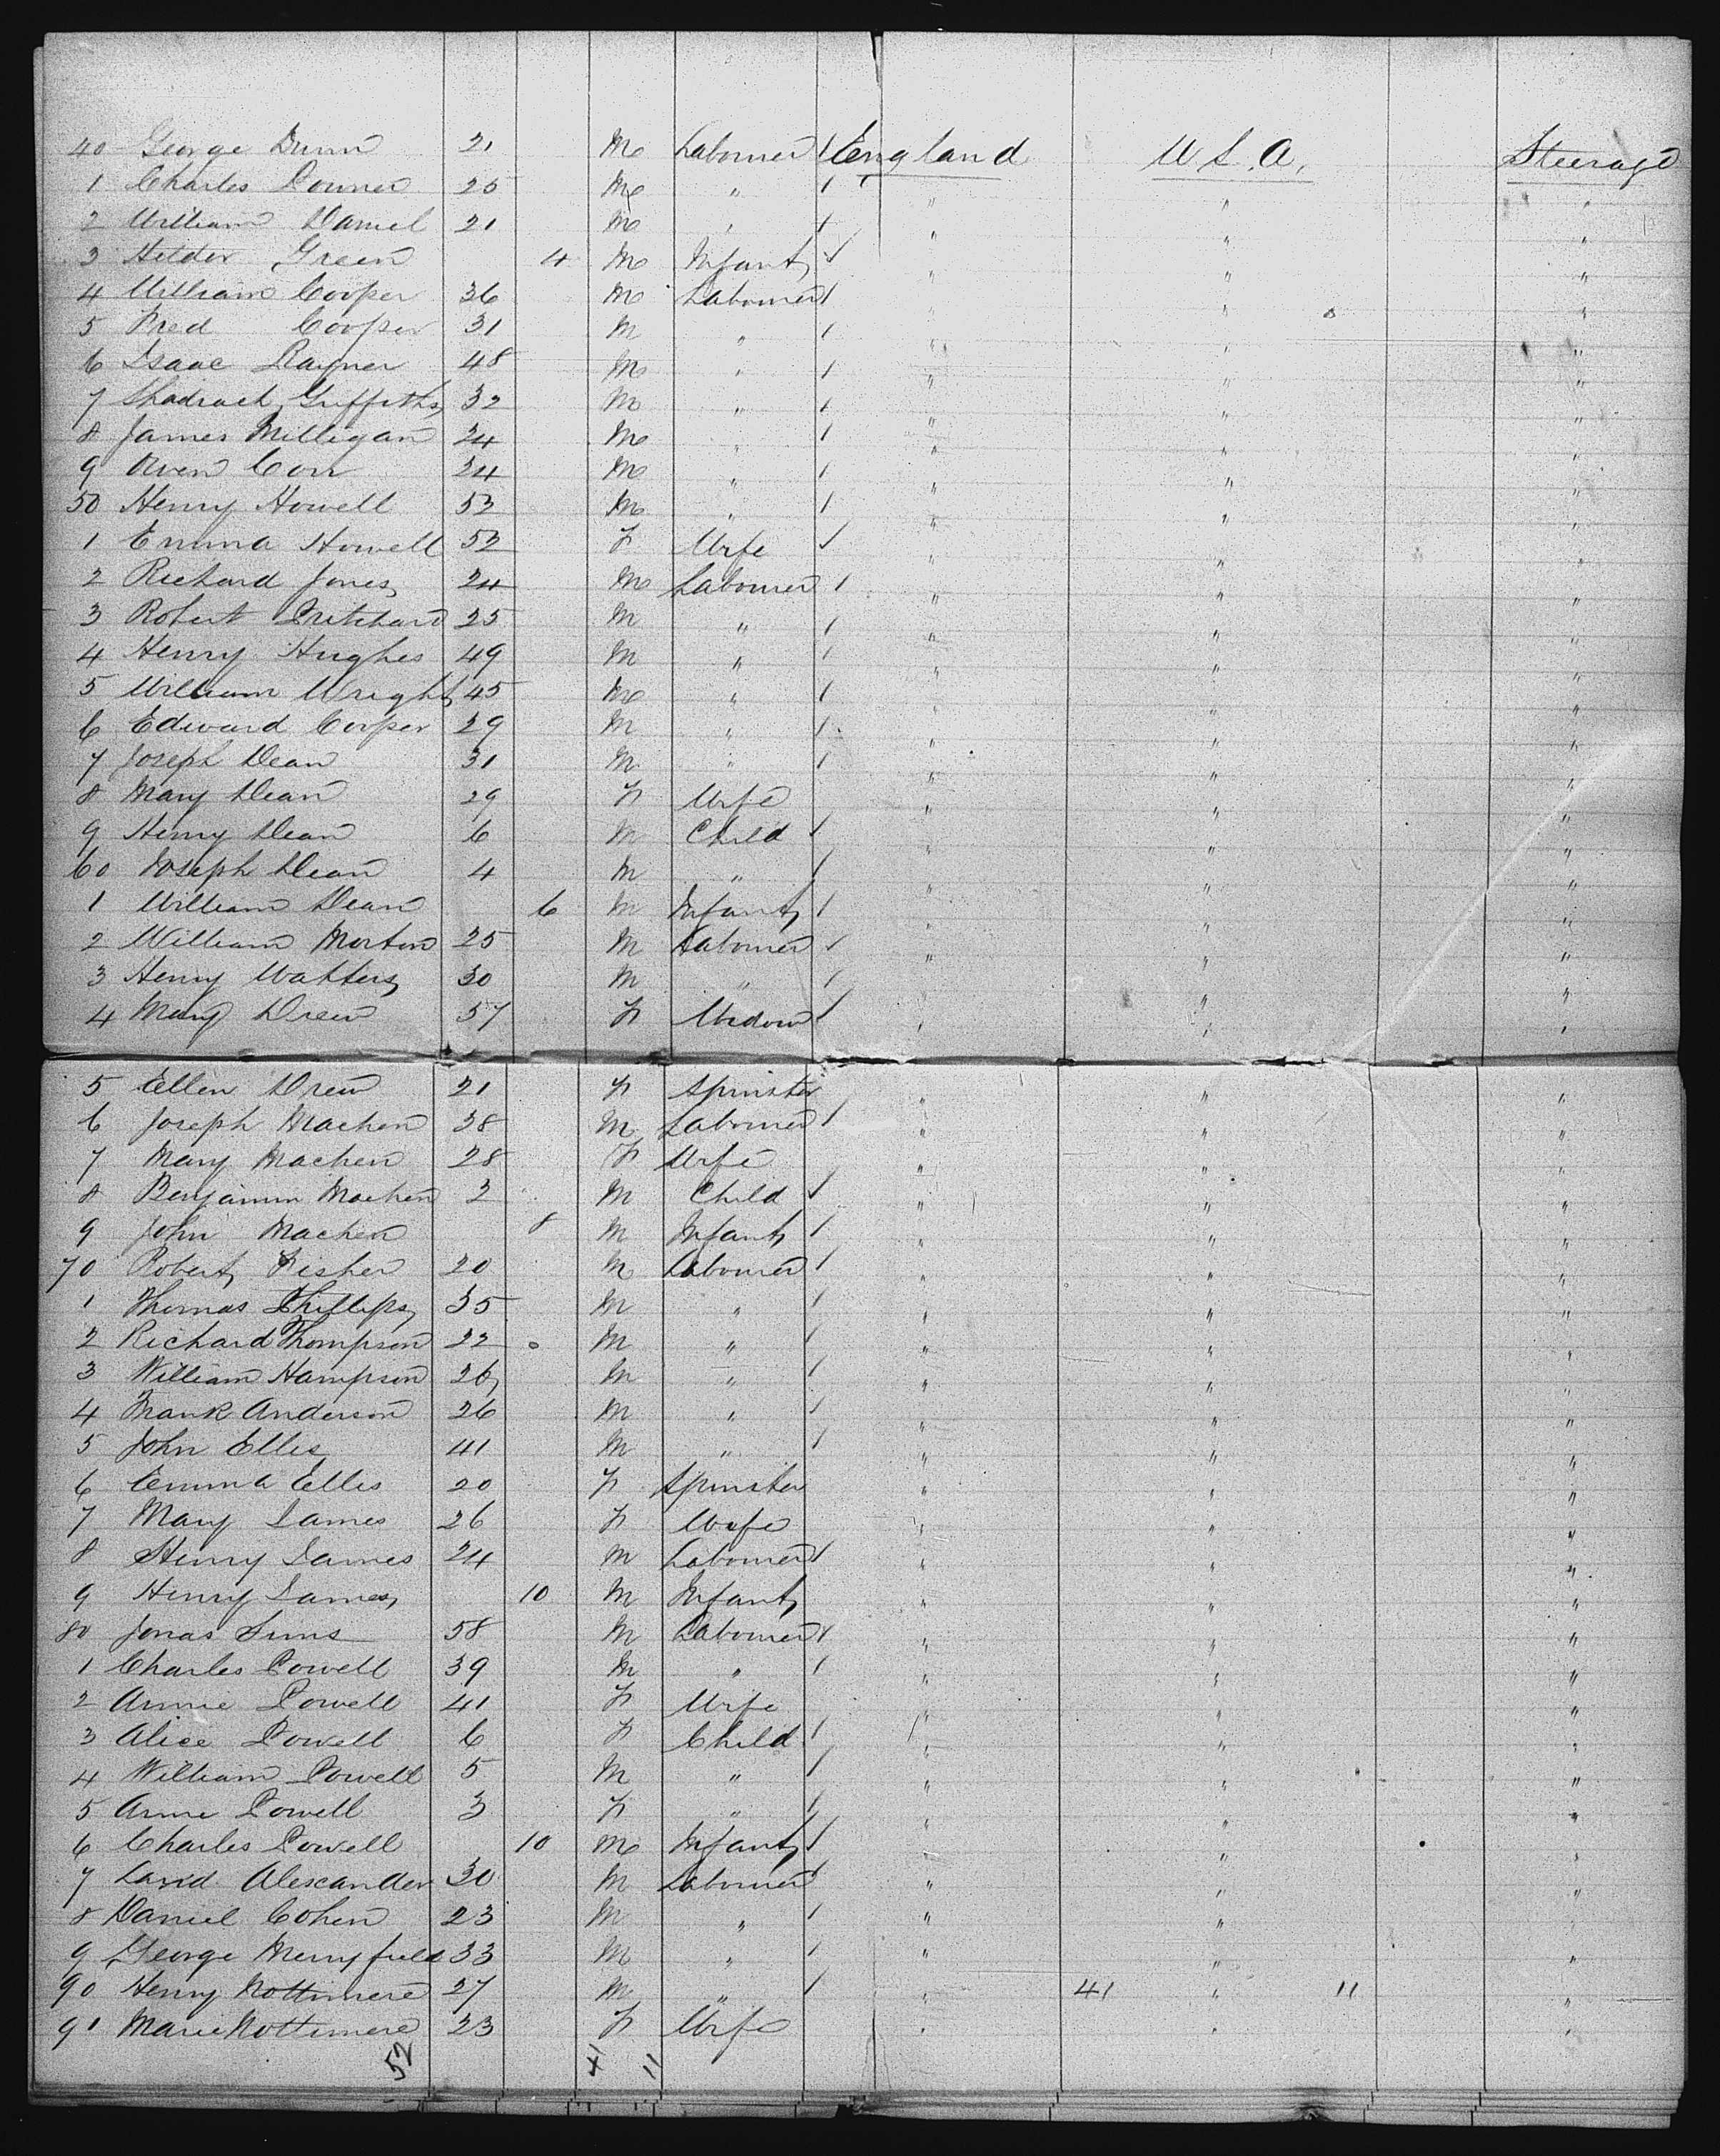 40 George Dunn 21 M Labourer / England U.S.A. Steerage
1 Charles Conner 25 M " / " " "
2 William Daniel 21 M " / " " "
3 Green 4 M Infant / " " "
4 William Cooper 36 M Labourer / " " "
5 Fred Cooper 31 M " / " " "
6 Isaac Rayner 48 M " / " " "
7 Shadrach Griffiths 32 M " / " " "
8 James Milligan 24 M " / " " "
9 Owen Corr 24 M " / " " "
50 Henry Howell 53 M " / " " "
1 Emma Howell 52 F Wife / " " "
2 Richard Jones 24 M Labourer / " " "
3 Robert Pritchard 25 M " / " " "
4 Henry Hughes 49 M " / " " "
5 William Wright 45 M " / " " "
6 Edward Cooper 29 M " / " " "
7 Joseph Dean 31 M " / " " "
8 Mary Dean 29 F Wife " " "
9 Henry Dean 6 M Child / " " "
60 Joseph Dean 4 M " / " " "
1 William Dean 6 M Infant / " " "
2 William Morton 25 M Labourer / " " "
3 Henry Watters 30 M " / " " "
4 Mary Drew 57 F Widow / " " "
5 Ellen Drew 21 F Spinster " " "
6 Joseph Machen 38 M Labourer / " " "
7 Mary Machen 28 F Wife " " "
8 Benjamin Machen 3 M Child / " " "
9 John Machen 8 M Infant / " " "
70 Robert Fisher 20 M Labourer / " " "
1 Thomas Phillips 35 M " / " " "
2 Richard Thompson 22 M " / " " "
3 William Hampson 26 M " / " " "
4 Frank Anderson 26 M " / " " "
5 John Ellis 41 M " / " " "
6 Emma Ellis 20 F Spinster " " "
7 Mary James 26 F Wife " " "
8 Henry James 24 M Labourer / " " "
9 Henry James 10 M Infant " " "
80 Jonas Sims 58 M Labourer / " " "
1 Charles Powell 39 M " / " " "
2 Annie Powell 41 F Wife " " "
3 Alice Powell 6 F Child / " " "
4 William Powell 5 M " / " " "
5 Annie Powell 3 F " / " " "
6 Charles Powell 10 M Infant / " " "
7 David Alexander 30 M Labourer / " " "
8 Daniel Cohen 23 M " / " " "
9 George Merryfield 33 M " / " " "
90 Henry Nottimere 27 M " / " 41 " 11 "
91 Marie Nottimere 23 F Wife " " "
52 41 11